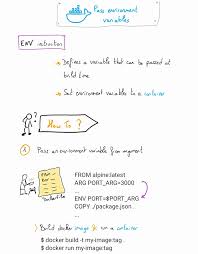 Pass environment
variables
ENV instruction
Defines a variable that can be passed at
build time
Set environment variables to a container
How To ?
1 Pass an environment variable from argument
FROM alpine:latest
ARG PORT_ARG=3000
...
ENV PORT=$PORT_ARG
COPY ./package.json .
...
Build docker image & run a container
$ docker build -t my-image:tag .
$ docker run my-image:tag